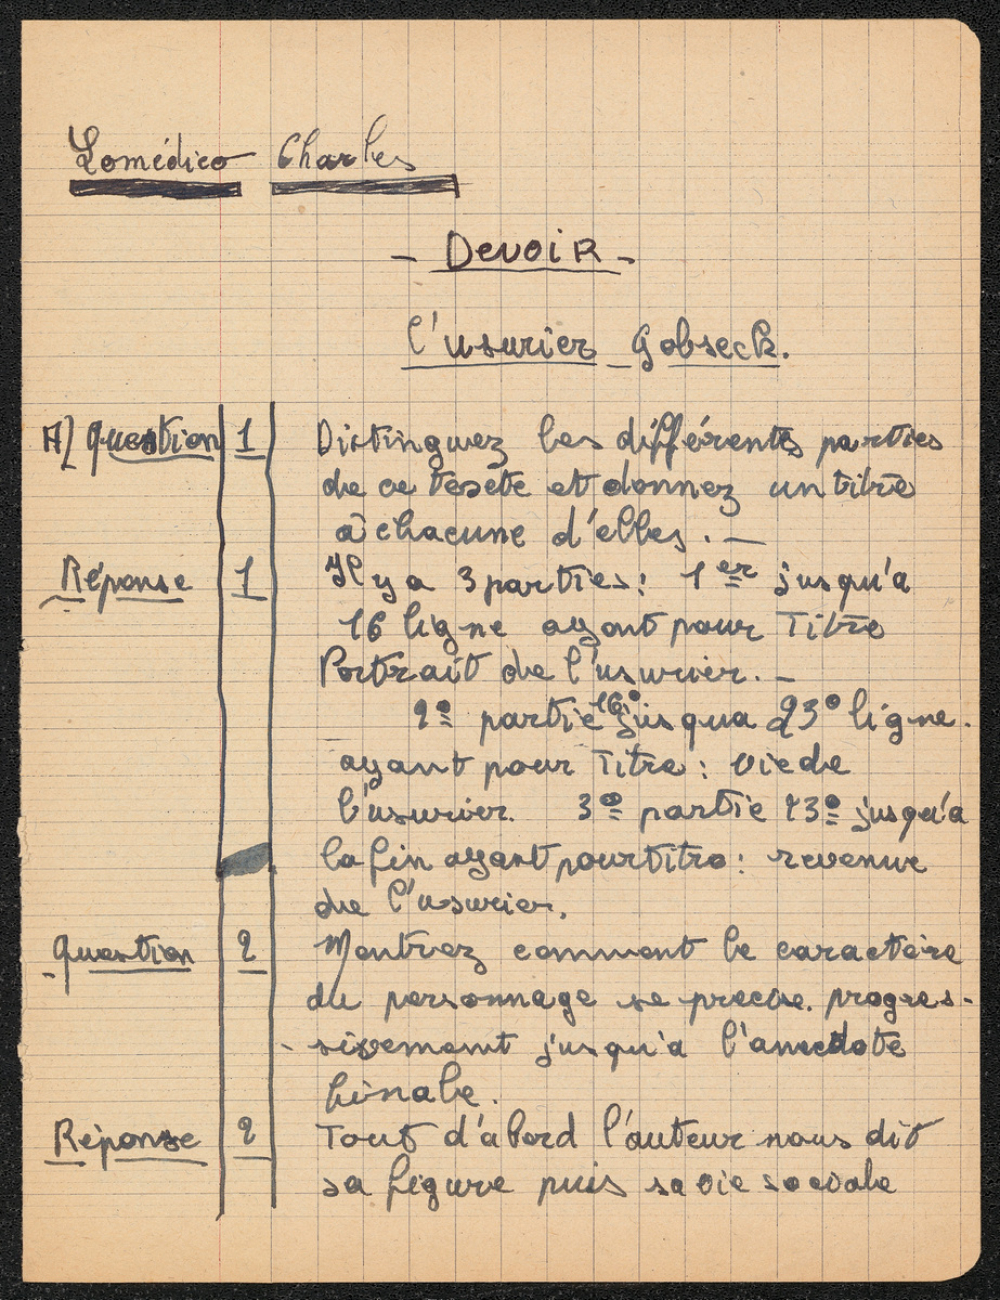 Lomédico Charles
- Devoir -
l'usurier Gobseck.
A) Question 1 Distinguez les différents parties
de ce texte et donnez un titre
à chacune d'elles. -
Réponse 1 Il y a 3 parties: 1er jusqu'a
16 ligne ayant pour Titre
Portrait de l'usurier. -
2e partie 16e jusqua 23e ligne.
ayant pour Titre: vie de
l'usurier. 3e partie 23e jusqu'a
la fin ayant pour titre: revenue
de l'usurier.
Question 2 Montrez comment le caractère
du personnage se precise progres-
- sivement jusqu'a l'anecdote
finale.
Réponse 2 Tout d'abord l'auteur nous dit
sa figure puis sa vie sociale